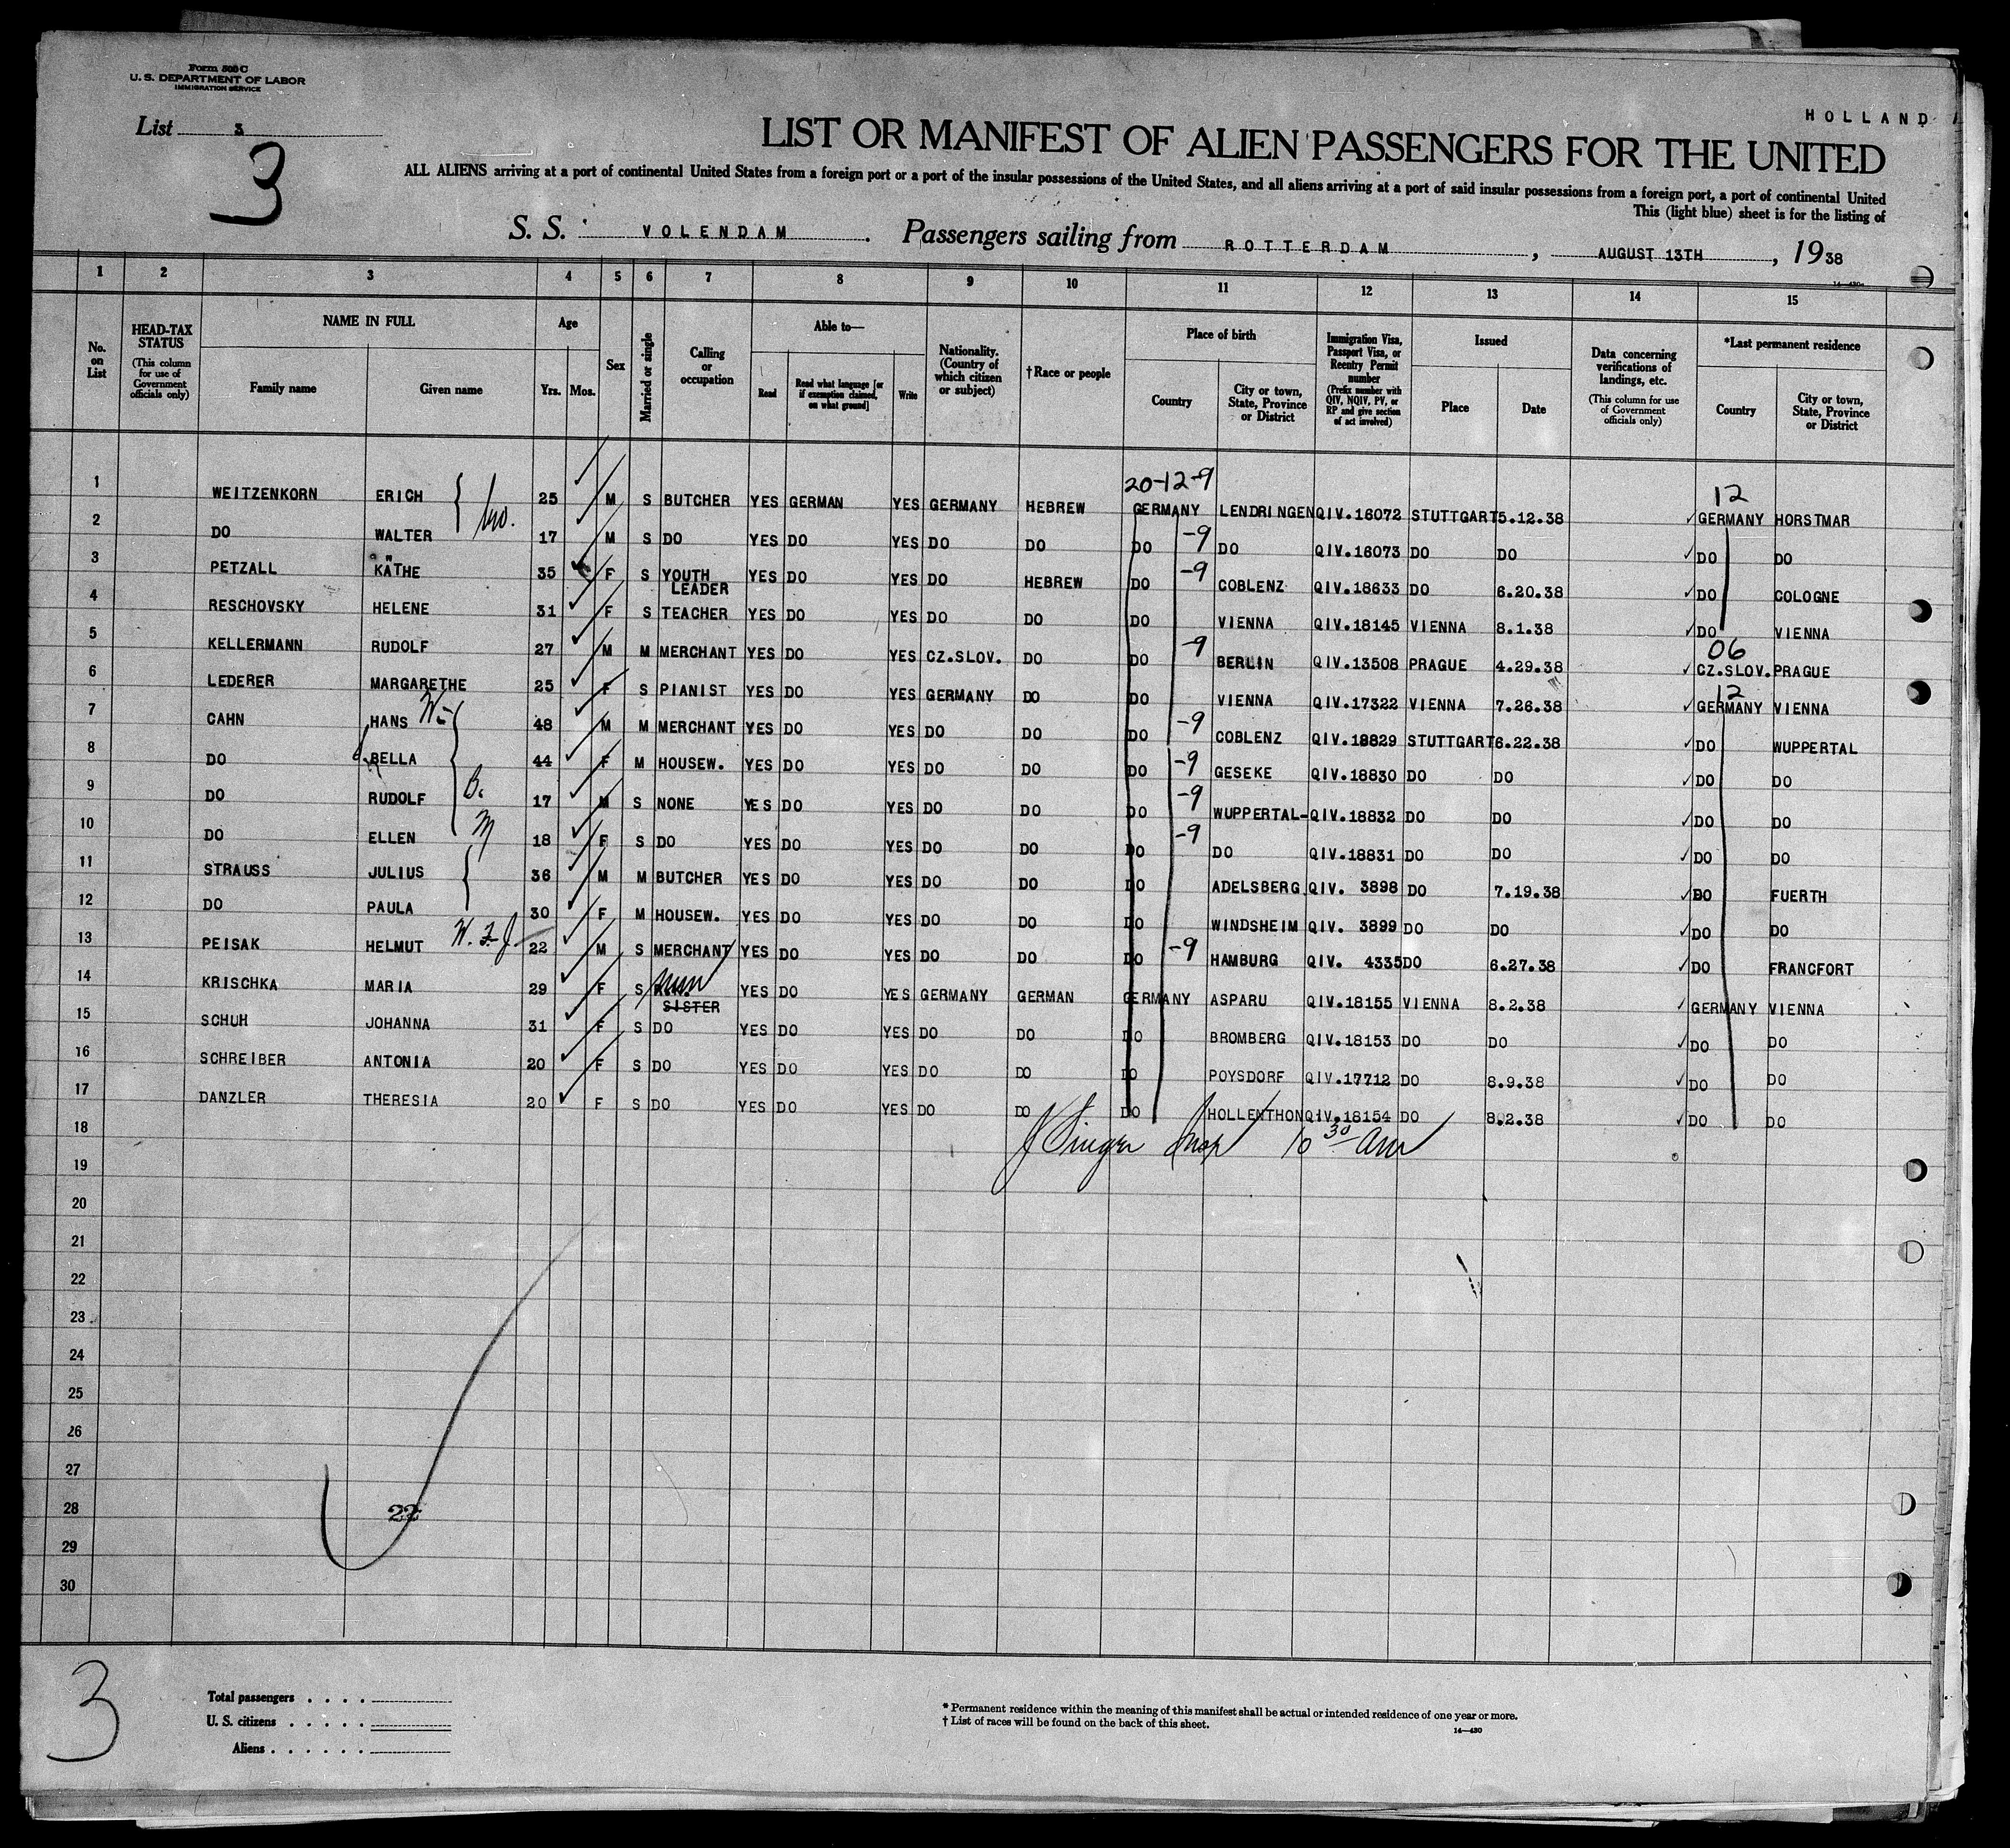 Form 500 C
U. S. DEPARTMENT OF LABOR
IMMIGRATION SERVICE
HOLLAND
List 3
3
LIST OR MANIFEST OF ALIEN PASSENGERS FOR THE UNITED
ALL ALIENS arriving at a port of continental United States from a foreign port or a port of the insular possessions of the United States, and all aliens arriving at a port of said insular possessions from a foreign port, a port of continental United
This (light blue) sheet is for the listing of
S. S. VOLENDAM . Passengers sailing from ROTTERDAM , AUGUST 13TH , 19 38
1 2 3 4 5 6 7 8 9 10 11 12 13 14 15
No. on List
HEAD-TAX STATUS (This column for use of Government officials only)
NAME IN FULL Family name Given name
Age Yrs. Mos.
Sex
Married or single
Calling or occupation
Able to— Read Read what language [or if exemption claimed, on what ground] Write
Nationality. (Country of which citizen or subject)
†Race or people
Place of birth Country City or town, State, Province or District
Immigration Visa, Passport Visa, or Reentry Permit number (Prefix number with QIV, NQIV, PV, or RP and give section of act involved)
Issued Place Date
Data concerning verifications of landings, etc. (This column for use of Government officials only)
*Last permanent residence Country City or town, State, Province or District
20-12-9 12
1 WEITZENKORN ERICH 25 M S BUTCHER YES GERMAN YES GERMANY HEBREW GERMANY LENDRINGEN QIV.16072 STUTTGART 5.12.38 GERMANY HORSTMAR
2 DO WALTER 17 M S DO YES DO YES DO DO DO -9 DO QIV.16073 DO DO DO DO
3 PETZALL KATHE 35 F S YOUTH LEADER YES DO YES DO HEBREW DO -9 COBLENZ QIV.18633 DO 6.20.38 DO COLOGNE
4 RESCHOVSKY HELENE 31 F S TEACHER YES DO YES DO DO DO VIENNA QIV.18145 VIENNA 8.1.38 DO VIENNA
5 KELLERMANN RUDOLF 27 M M MERCHANT YES DO YES CZ.SLOV. DO DO -9 BERLIN QIV.13508 PRAGUE 4.29.38 06 CZ.SLOV. PRAGUE
6 LEDERER MARGARETHE 25 F S PIANIST YES DO YES GERMANY DO DO VIENNA QIV.17322 VIENNA 7.26.38 12 GERMANY VIENNA
7 CAHN HANS 48 M M MERCHANT YES DO YES DO DO DO -9 COBLENZ QIV.18829 STUTTGART 6.22.38 DO WUPPERTAL
8 DO BELLA 44 F M HOUSEW. YES DO YES DO DO DO -9 GESEKE QIV.18830 DO DO DO DO
9 DO RUDOLF B. 17 M S NONE YES DO YES DO DO DO -9 WUPPERTAL- QIV.18832 DO DO DO DO
10 DO ELLEN M 18 F S DO YES DO YES DO DO DO -9 DO QIV.18831 DO DO DO DO
11 STRAUSS JULIUS 36 M M BUTCHER YES DO YES DO DO DO ADELSBERG QIV. 3898 DO 7.19.38 DO FUERTH
12 DO PAULA 30 F M HOUSEW. YES DO YES DO DO DO WINDSHEIM QIV. 3899 DO DO DO DO
13 PEISAK HELMUT 22 M S MERCHANT YES DO YES DO DO DO -9 HAMBURG QIV. 4335 DO 6.27.38 DO FRANCFORT
14 KRISCHKA MARIA 29 F S nun SISTER YES DO YES GERMANY GERMAN GERMANY ASPARU QIV.18155 VIENNA 8.2.38 GERMANY VIENNA
15 SCHUH JOHANNA 31 F S DO YES DO YES DO DO DO BROMBERG QIV.18153 DO DO DO DO
16 SCHREIBER ANTONIA 20 F S DO YES DO YES DO DO DO POYSDORF QIV.17712 DO 8.9.38 DO DO
17 DANZLER THERESIA 20 F S DO YES DO YES DO DO DO HOLLENTHON QIV.18154 DO 8.2.38 DO DO
18 Singer Insp 10 30 am
19
20
21
22
23
24
25
26
27
28 22
29
30
3
Total passengers
U. S. citizens
Aliens
* Permanent residence within the meaning of this manifest shall be actual or intended residence of one year or more.
† List of races will be found on the back of this sheet.
14—430